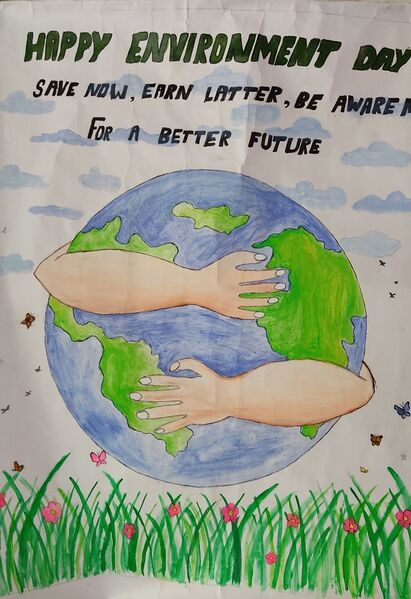 HAPPY ENVIRONMENT DAY
SAVE NOW, EARN LATTER, BE AWARE
FOR A BETTER FUTURE